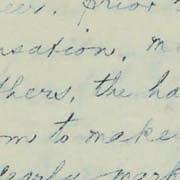 prior
sation, m
thers, the ha
om to make
early mark